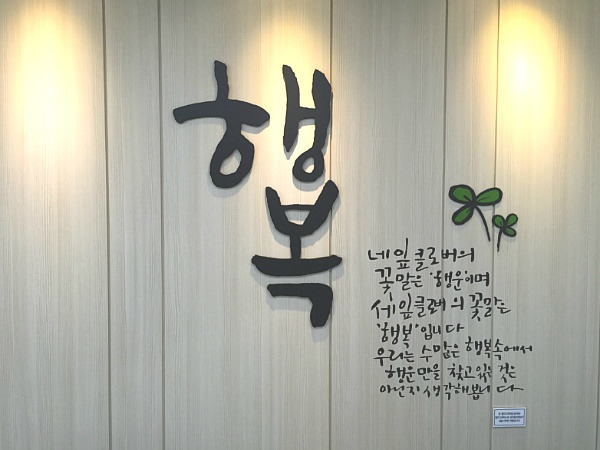 행
복
네잎클로버의
꽃말은 '행운'이며
세잎클로버의 꽃말은
'행복'입니다
우리는 수많은 행복속에서
행운만을 찾고있는 것은
아닌지 생각해봅니다